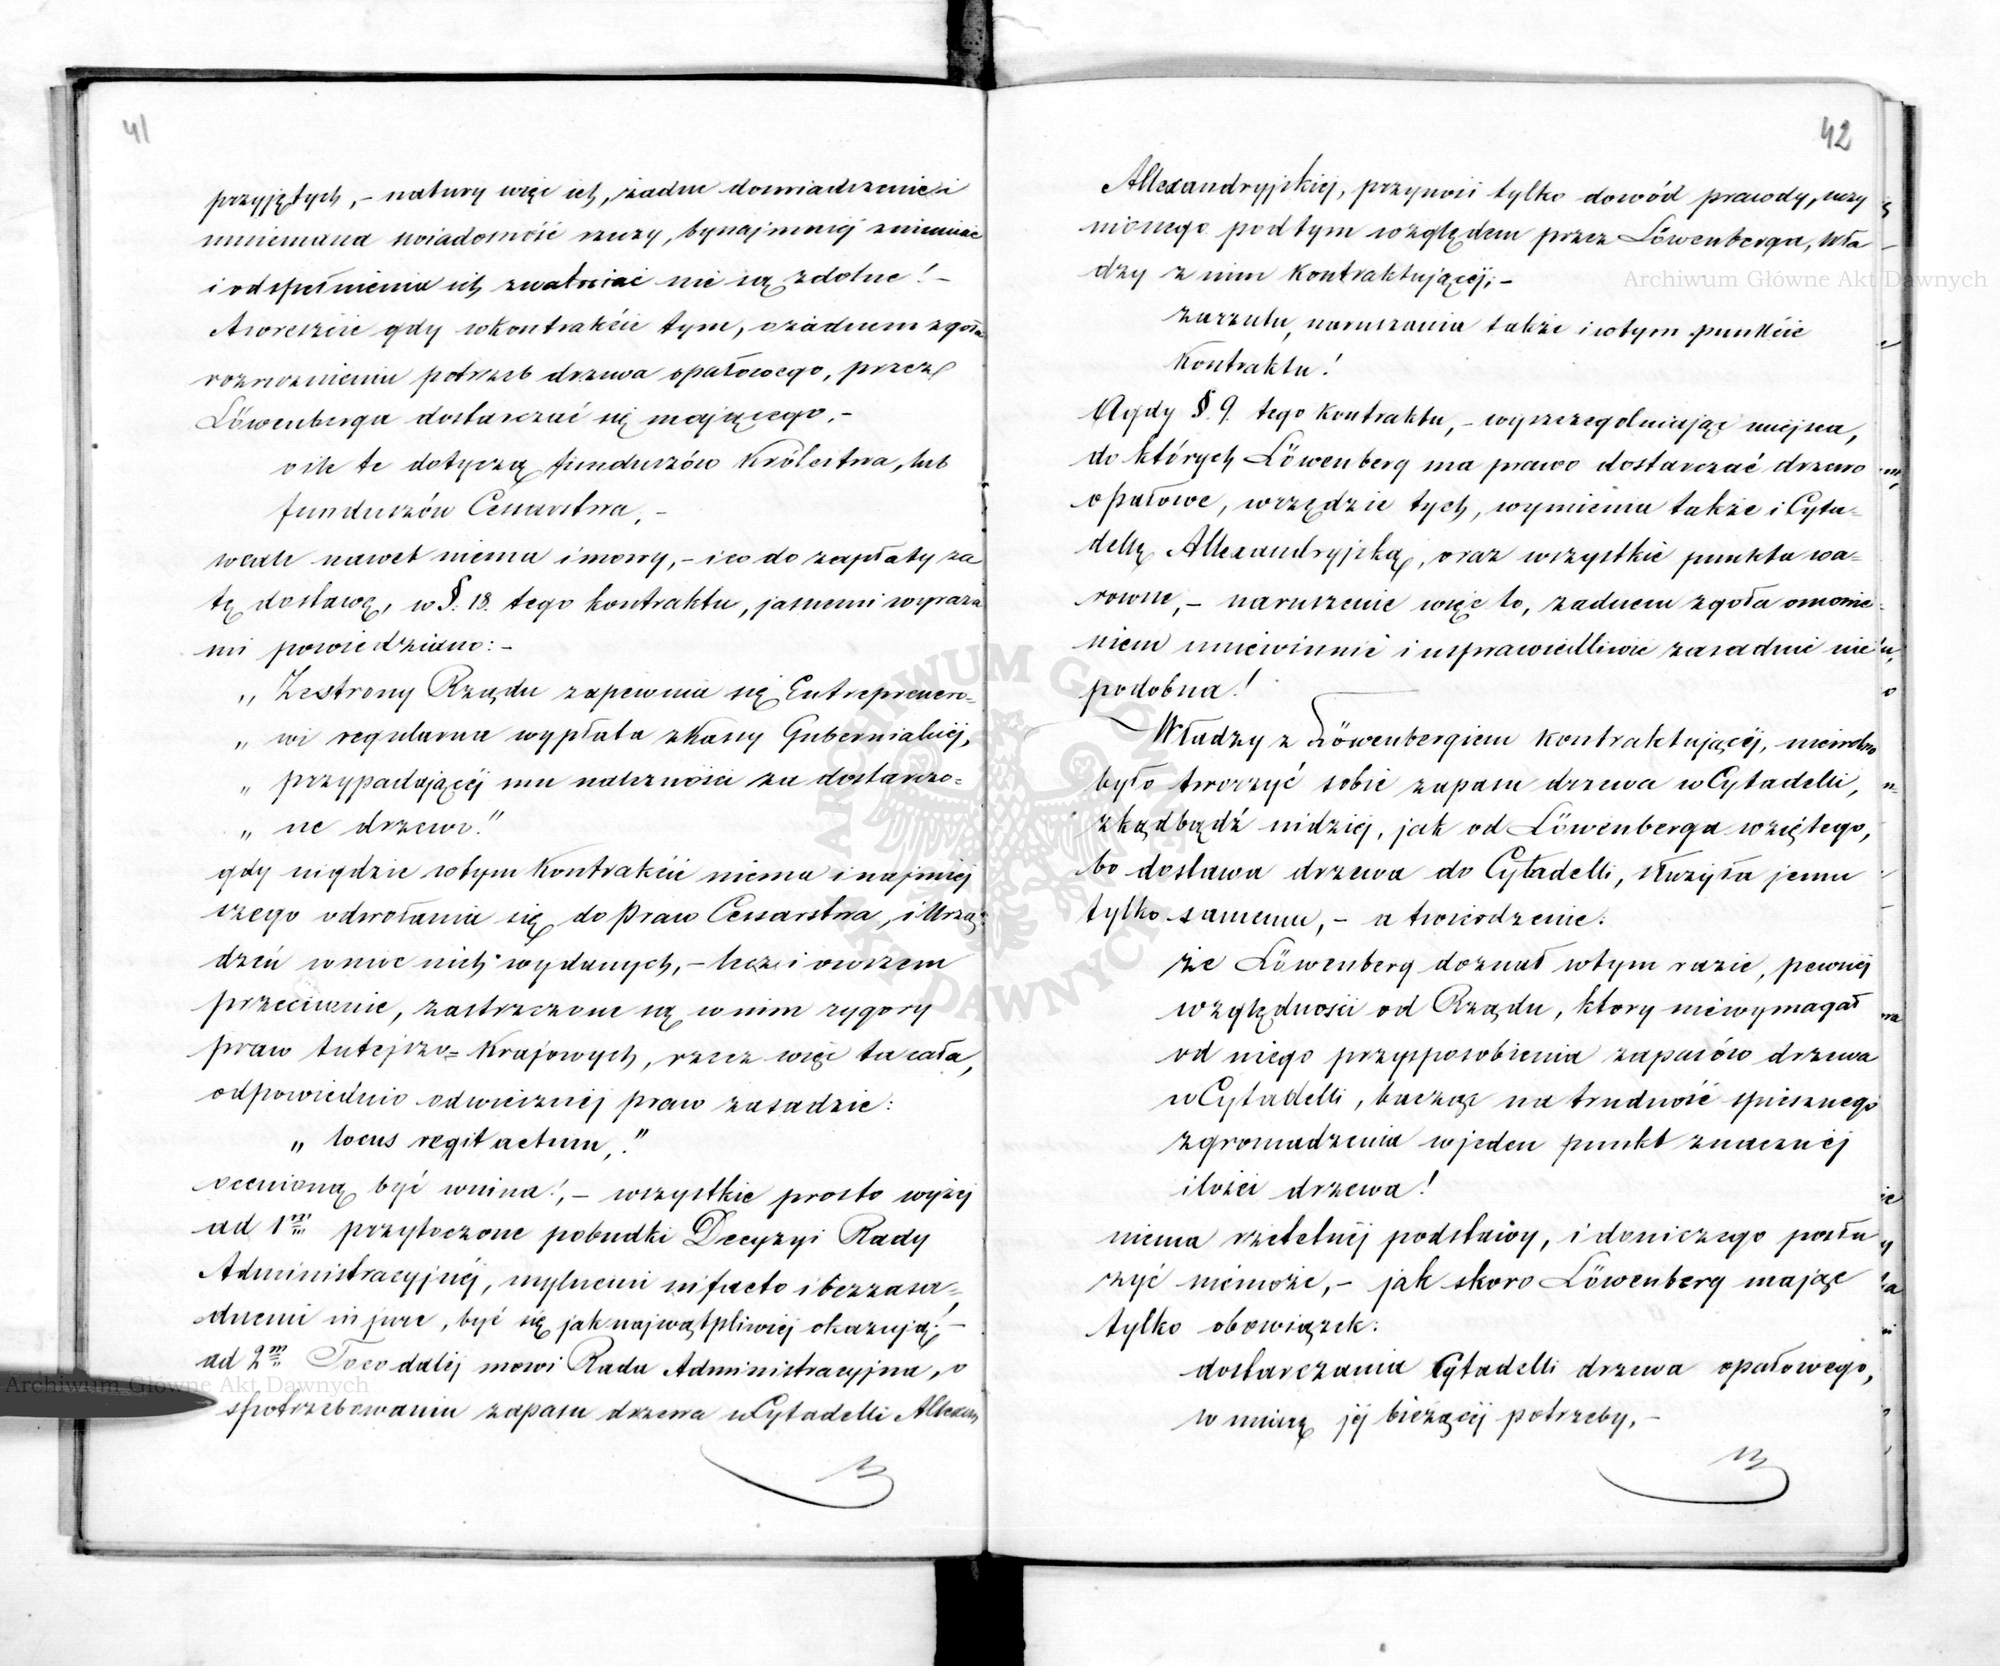 41
przyjętych, – natury więc ich, żadne doswiadczenie i
mniemana swiadomość rzeczy, bynajmniej zmieniać
i od spełnienia ich zwalniać nie są zdolne! –
A wreszcie gdy w kontrakcie tym, o żadnem zgoła
rozroznieniu potrzeb drzewa opałowego, przez
Löwenberga dostarczać się mającego, –
o ile te dotyczą funduszów Królestwa, lub
funduszów Cesarstwa, –
wcale nawet niema i mowy, – i co do zapłaty za
tę dostawę, w §. 18. tego kontraktu, jasnemi wyraza
mi powiedziano: –
„ Ze strony Rządu zapewnia się Entreprenero-
„ wi regularna wypłata z Kassy Gubernialnej,
„ przypadającej mu należności za dostarczo-
„ ne drzewo."
gdy nigdzie w tym Kontrakcie niema i najmniej
szego odwołania się do Praw Cesarstwa, i Urzą-
dzeń w moc nich wydanych, – lecz i owszem
przeciwnie, zastrzeżone są w nim rygory
praw tutejszo-Krajowych, rzecz więc ta cała,
odpowiednio odwiecznej praw zasadzie:
„ locus regit actum,"
ocenioną być winna!, – wszystkie prosto wyżej
ad 1m przytoczone pobudki Decyzyi Rady
Administracyjnej, mylnemi in facto i bezzasa-
dnemi in jure, być się jaknajwątpliwiej okazują! –
ad 2m To co dalej mowi Rada Administracyjna, o
spotrzebowaniu zapasu drzewa w Cytadelli Allexan
42
Allexandryjskiej, przynosi tylko dowód prawdy, uczy
nionego pod tym względem przez Löwenberga, Wła
dzy z nim Kontraktującej; –
zarzutu, naruszania także i w tym punkcie
Kontraktu!
A gdy §. 9. tego Kontraktu, – wyszczegolniając miejsca,
do których Löwenberg ma prawo dostarczać drzewo
opałowe, w rzędzie tych, wymienia także i Cyta-
dellę Allexandryjską, oraz wszystkie punkta wa-
rowne, – naruszenie więc to, zadnem zgoła omowie-
niem uniewinnić i usprawiedliwić zasadnie nie
podobna!
Władzy z Löwenbergiem Kontraktującej, niewolno
było tworzyć sobie zapasu drzewa w Cytadelli,
zkądbądź indziej, jak od Löwenberga wziętego,
bo dostawa drzewa do Cytadelli, służyła jemu
tylko samemu, – a twierdzenie:
że Löwenberg doznał w tym razie, pewnej
względności od Rządu, ktory niewymagał
od niego przysposobienia zapasów drzewa
w Cytadelli, bacząc na trudność spiesznego
zgromadzenia w jeden punkt znacznej
ilości drzewa!
niema rzetelnej podstawy, i do niczego posłu
żyć niemoże, – jak skoro Löwenberg mając
tylko obowiązek:
dostarczania Cytadelli drzewa opałowego,
w miarę jej bieżącej potrzeby, –
Archiwum Główne Akt Dawnych
Archiwum Główne Akt Dawnych
ARCHIWUM GŁÓWNE AKT DAWNYCH